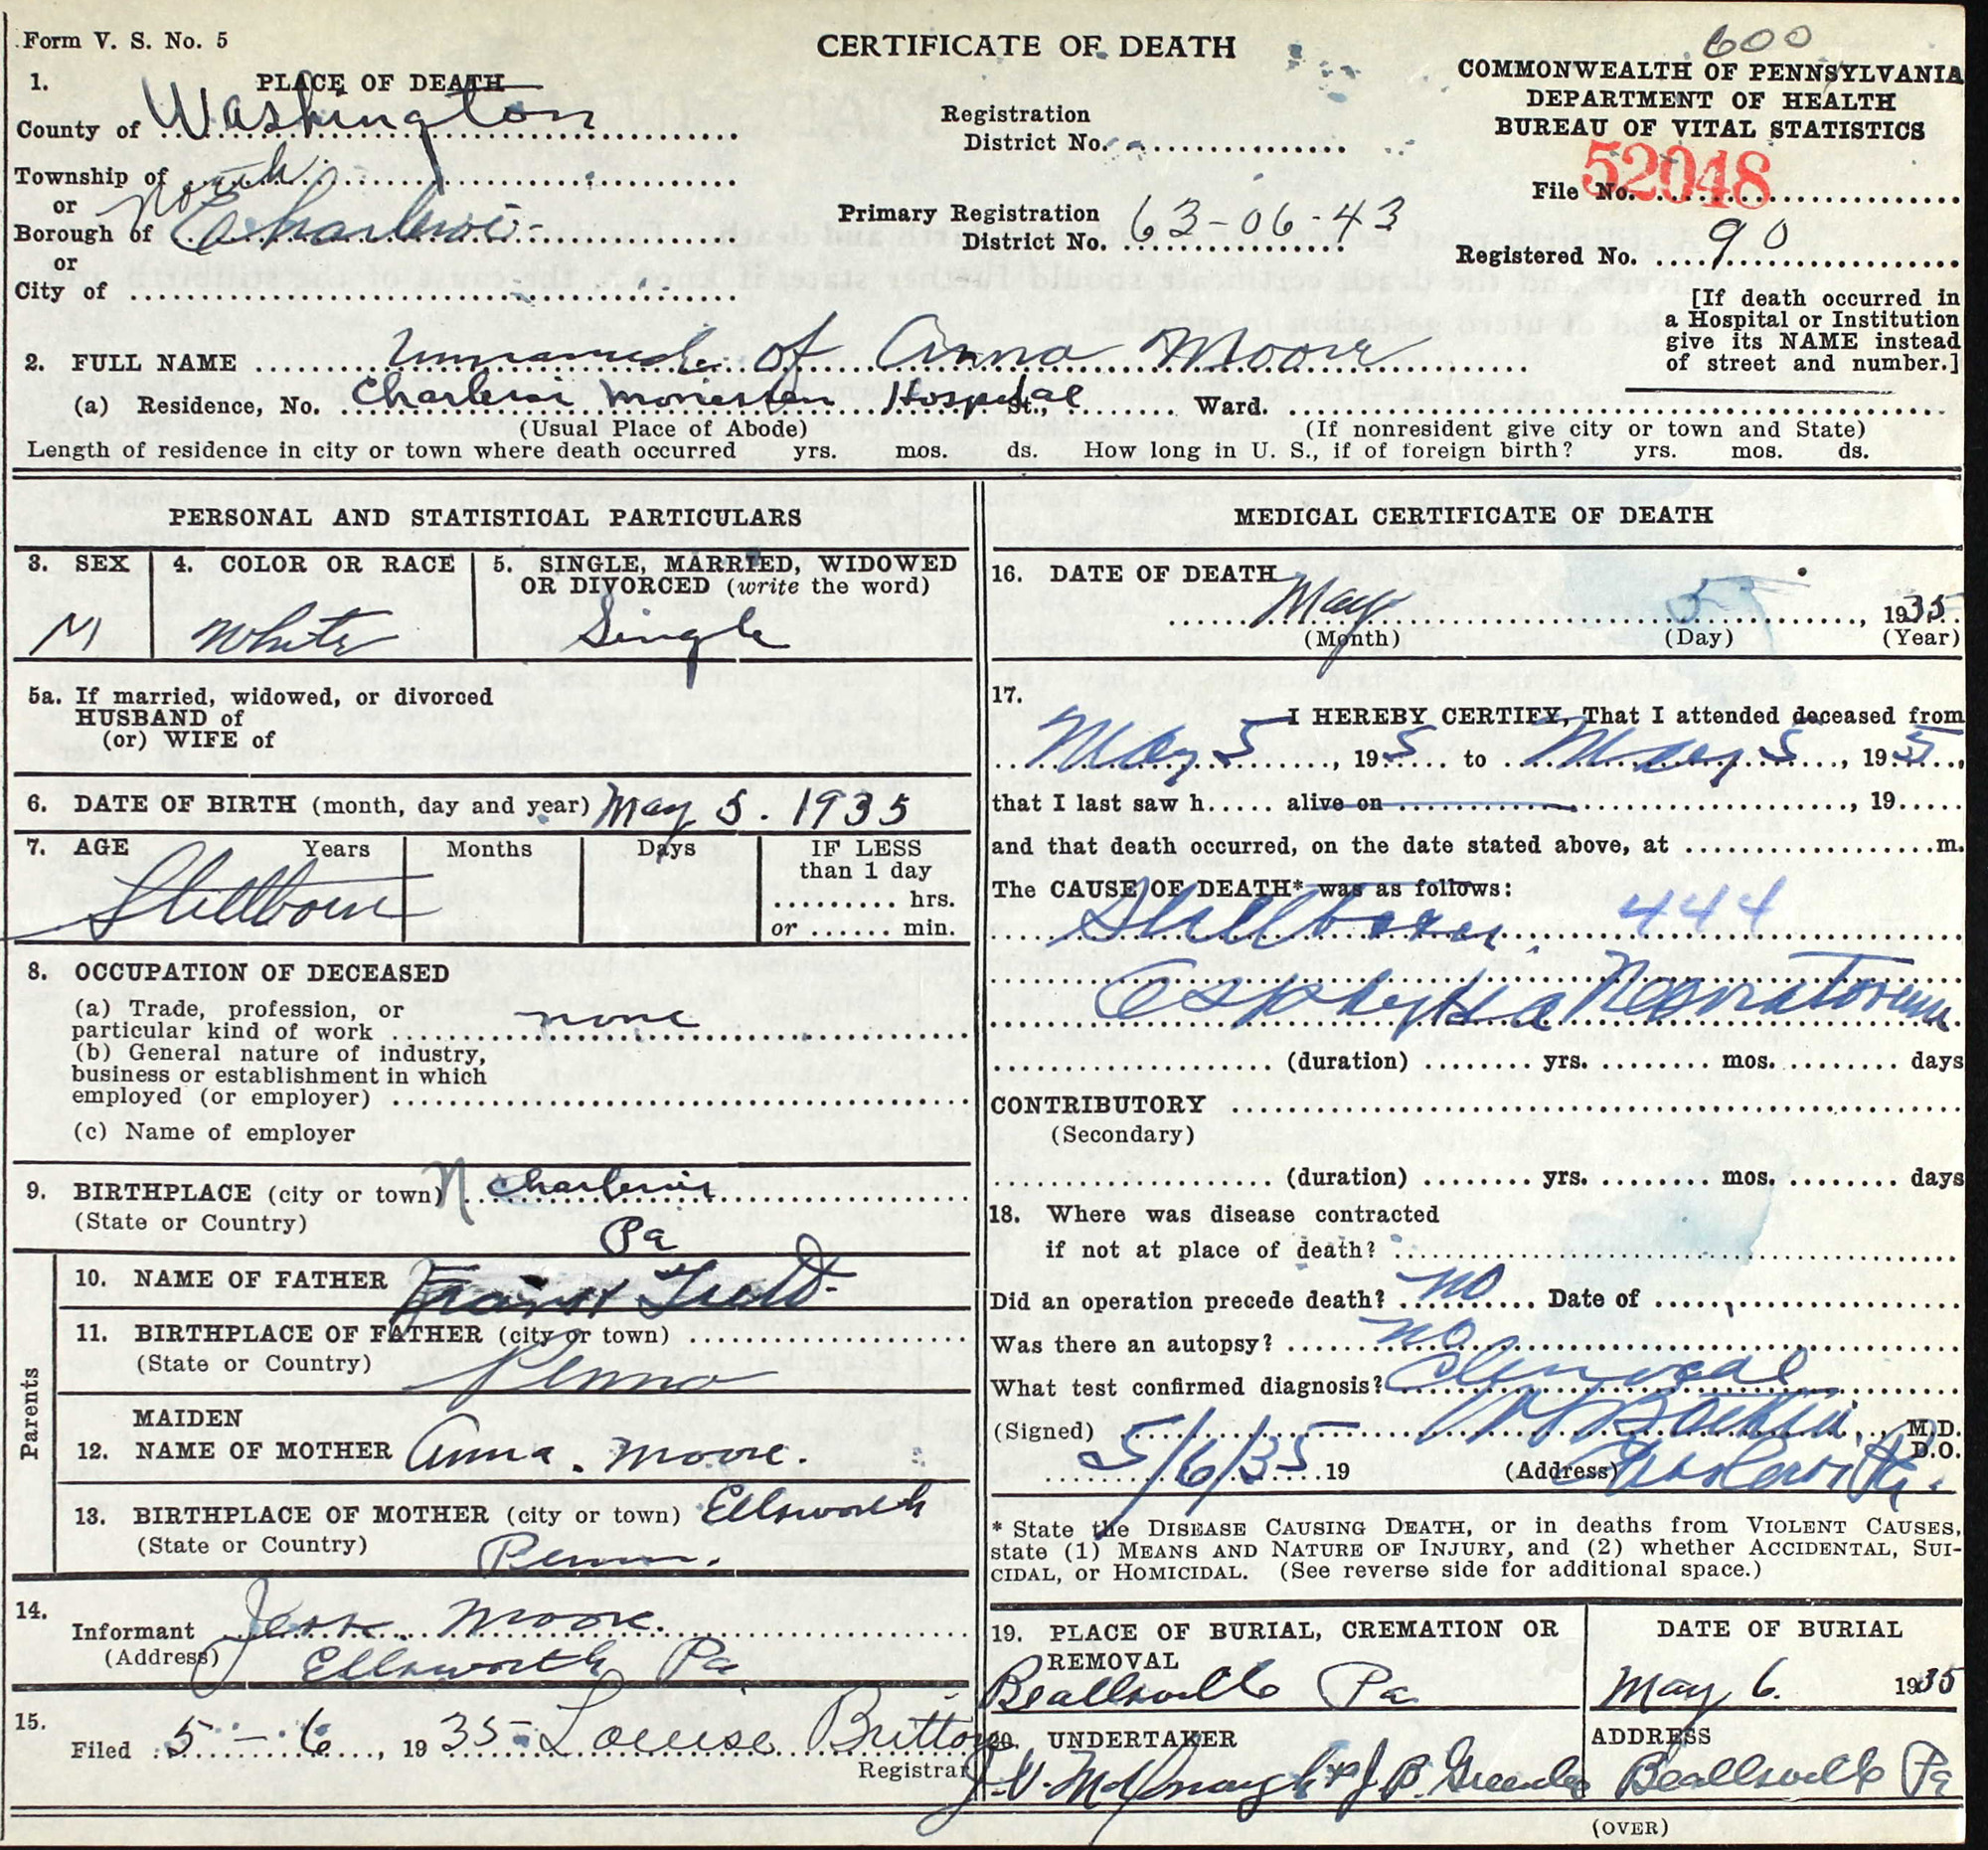 Form V. S. No. 5
CERTIFICATE OF DEATH
600
COMMONWEALTH OF PENNSYLVANIA
DEPARTMENT OF HEALTH
BUREAU OF VITAL STATISTICS
1. PLACE OF DEATH
County of Washington
Township of
or
North
Borough of Charleroi
or
City of
Registration
District No.
Primary Registration
District No. 63-06-43
File No. 52048
Registered No. 90
[If death occurred in
a Hospital or Institution
give its NAME instead
of street and number.]
2. FULL NAME Unnamed of Anna Moore
(a) Residence, No. Charleroi Monessen Hospital St., Ward.
(Usual Place of Abode) (If nonresident give city or town and State)
Length of residence in city or town where death occurred yrs. mos. ds. How long in U. S., if of foreign birth? yrs. mos. ds.
PERSONAL AND STATISTICAL PARTICULARS
3. SEX
M
4. COLOR OR RACE
White
5. SINGLE, MARRIED, WIDOWED
OR DIVORCED (write the word)
Single
5a. If married, widowed, or divorced
HUSBAND of
(or) WIFE of
6. DATE OF BIRTH (month, day and year) May 5. 1935
7. AGE Years Months Days IF LESS
than 1 day
hrs.
or min.
Stillborn
8. OCCUPATION OF DECEASED
(a) Trade, profession, or
particular kind of work none
(b) General nature of industry,
business or establishment in which
employed (or employer)
(c) Name of employer
9. BIRTHPLACE (city or town) N Charleroi
(State or Country) Pa
Parents
10. NAME OF FATHER
11. BIRTHPLACE OF FATHER (city or town)
(State or Country) Penna
MAIDEN
12. NAME OF MOTHER Anna. Moore.
13. BIRTHPLACE OF MOTHER (city or town) Ellsworth
(State or Country) Penn.
14.
Informant Moore.
(Address) Ellsworth Pa
15.
Filed 5-6, 1935 Louise Britton
Registrar
MEDICAL CERTIFICATE OF DEATH
16. DATE OF DEATH
May 5, 1935
(Month) (Day) (Year)
17.
I HEREBY CERTIFY, That I attended deceased from
May 5, 195 to May 5, 195,
that I last saw h alive on , 19
and that death occurred, on the date stated above, at m.
The CAUSE OF DEATH* was as follows:
Stillborn 444
Asphyxia Neonatorum
(duration) yrs. mos. days
CONTRIBUTORY
(Secondary)
(duration) yrs. mos. days
18. Where was disease contracted
if not at place of death?
Did an operation precede death? no Date of
Was there an autopsy? no
What test confirmed diagnosis? Clinical
(Signed) M.D.
D.O.
5/6/35 19 (Address) Charleroi Pa.
* State the DISEASE CAUSING DEATH, or in deaths from VIOLENT CAUSES,
state (1) MEANS AND NATURE OF INJURY, and (2) whether ACCIDENTAL, SUI-
CIDAL, or HOMICIDAL. (See reverse side for additional space.)
19. PLACE OF BURIAL, CREMATION OR
REMOVAL
Beallsville Pa
DATE OF BURIAL
May 6. 1935
20. UNDERTAKER
J. V. McDonough & J B.
ADDRESS
Beallsville Pa
(OVER)